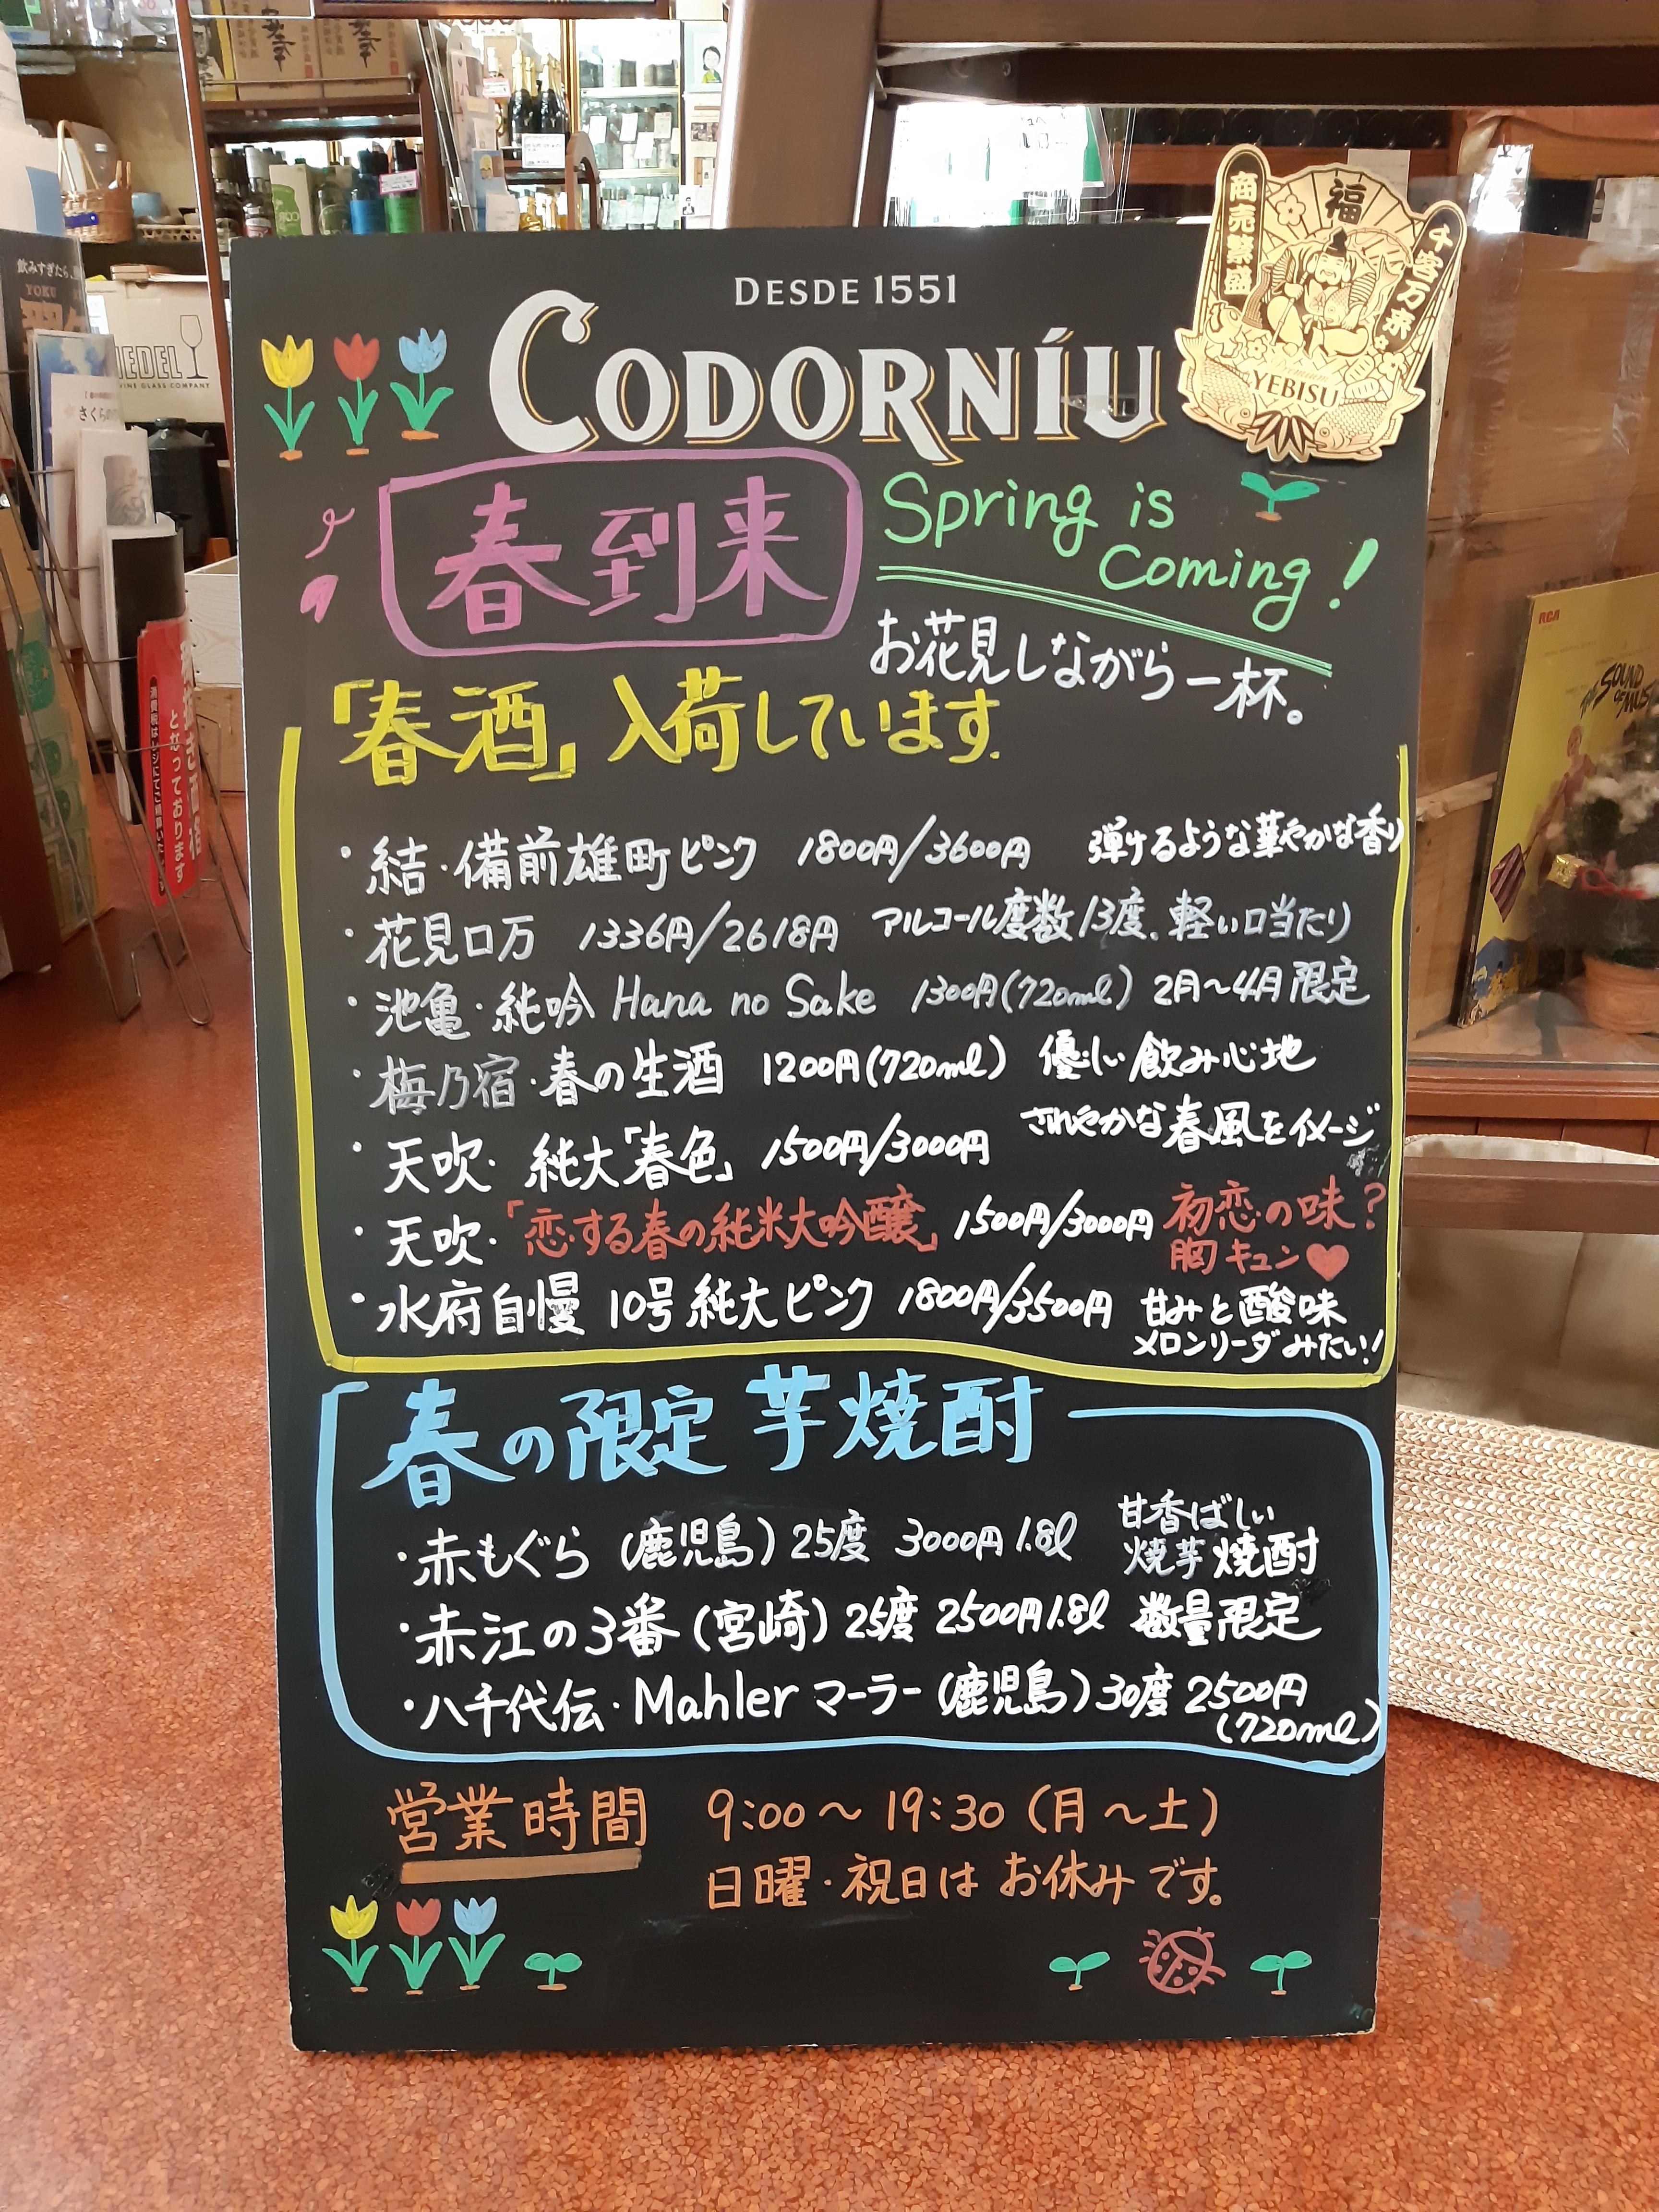 DESDE 1551
CODORNÍU
商売繁盛
福
千客万来
YEBISU
春到来
Spring is
Coming!
お花見しながら一杯。
「春酒」入荷しています。
・結・備前雄町ピンク 1800円/3600円 弾けるような華やかな香り
・花見ロ万 1336円/2618円 アルコール度数13度、軽い口当たり
・池亀・純吟 Hana no Sake 1300円(720ml) 2月〜4月限定
・梅乃宿・春の生酒 1200円(720ml) 優しい飲み心地
・天吹・純大「春色」 1500円/3000円 さわやかな春風をイメージ
・天吹・「恋する春の純米大吟醸」 1500円/3000円 初恋の味?
胸キュン♥
・水府自慢 10号 純大ピンク 1800円/3500円 甘みと酸味
メロンリーダみたい!
春の限定 芋焼酎
・赤もぐら (鹿児島) 25度 3000円 1.8l 甘香ばしい
焼芋焼酎
・赤江の3番 (宮崎) 25度 2500円 1.8l 数量限定
・八千代伝・Mahler マーラー (鹿児島) 30度 2500円
(720ml)
営業時間 9:00〜19:30 (月〜土)
日曜・祝日は お休みです。
飲みすぎたら、
YOKU
RIEDEL
WINE GLASS COMPANY
となっております
RCA
THE SOUND
OF MUSIC